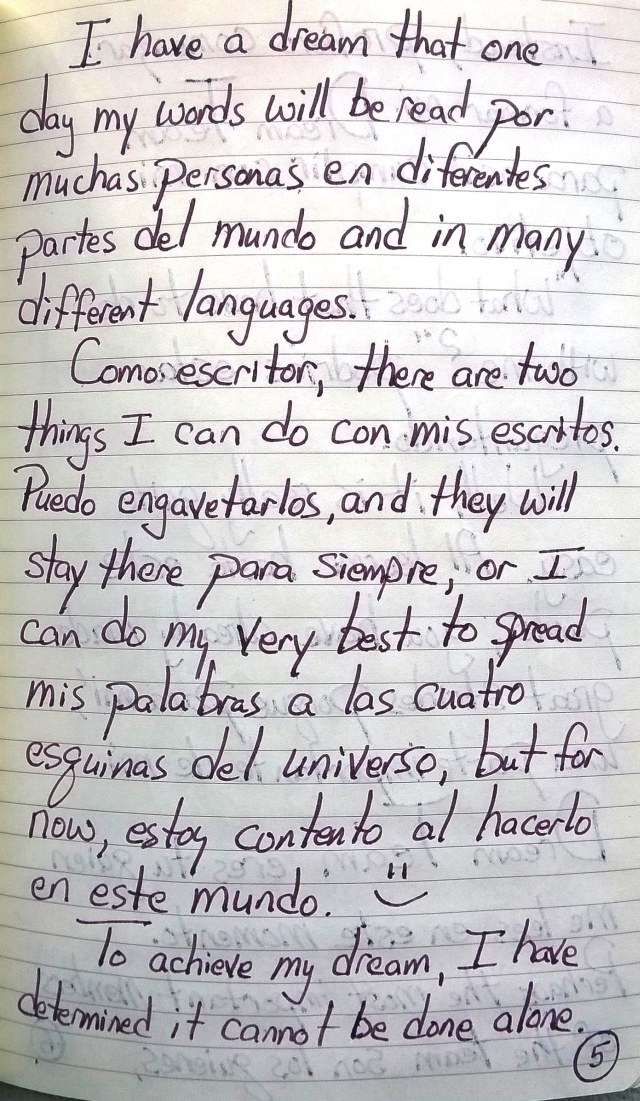 I have a dream that one
day my words will be read por
muchas personas en diferentes
partes del mundo and in many
different languages.
Como escritor, there are two
things I can do con mis escritos.
Puedo engavetarlos, and they will
stay there para siempre, or I
can do my very best to spread
mis palabras a las cuatro
esquinas del universo, but for
now, estoy contento al hacerlo
en este mundo.
To achieve my dream, I have
determined it cannot be done alone.
5